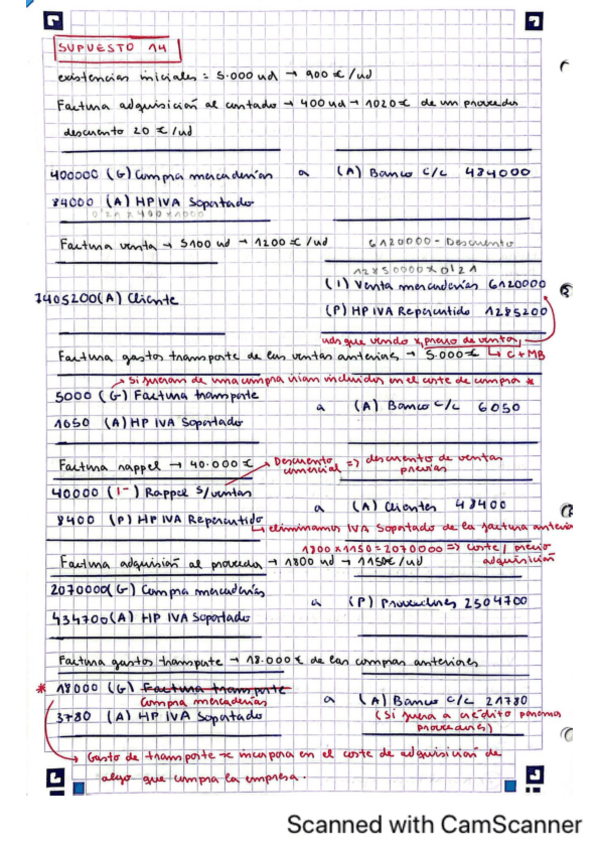 SUPUESTO 14
existencias iniciales = 5.000 ud → 900 €/ud
Factura adquisición al contado → 400 ud → 1020 € de un proveedor
descuento 20 €/ud
400000 (G) Compra mercaderías a (A) Banco c/c 484000
84000 (A) HP IVA Soportado
0'21 x 400 x 1000
Factura venta → 5100 ud → 1200 €/ud 6120000 - Descuento
12850000 x 0'21
(I) Venta mercaderías 6120000
7405200 (A) Cliente
(P) HP IVA Repercutido 1285200
uds que vendo x precio de venta
Factura gastos transporte de las ventas anteriores → 5.000 € ↳ C + MB
→ Si fueran de una compra irían incluidos en el coste de compra *
5000 (G) Factura transporte a (A) Banco c/c 6050
1050 (A) HP IVA Soportado
Factura rappel → 40.000 € → Descuento comercial => descuento de ventas previas
40000 (I-) Rappel s/ventas a (A) Clientes 48400
8400 (P) HP IVA Repercutido
↳ eliminamos IVA Soportado de la factura anterior
1800 x 1150 = 2070000 => coste / precio adquisición
Factura adquisición al proveedor → 1800 ud → 1150 €/ud
2070000 (G) Compra mercaderías a (P) Proveedores 2504700
434700 (A) HP IVA Soportado
Factura gastos transporte → 18.000 € de las compras anteriores
* 18000 (G) Factura transporte a (A) Banco c/c 21780
Compra mercaderías
3780 (A) HP IVA Soportado (Si fuera a crédito ponemos
proveedores)
→ Gasto de transporte se incorpora en el coste de adquisición de
algo que compra la empresa.
Scanned with CamScanner